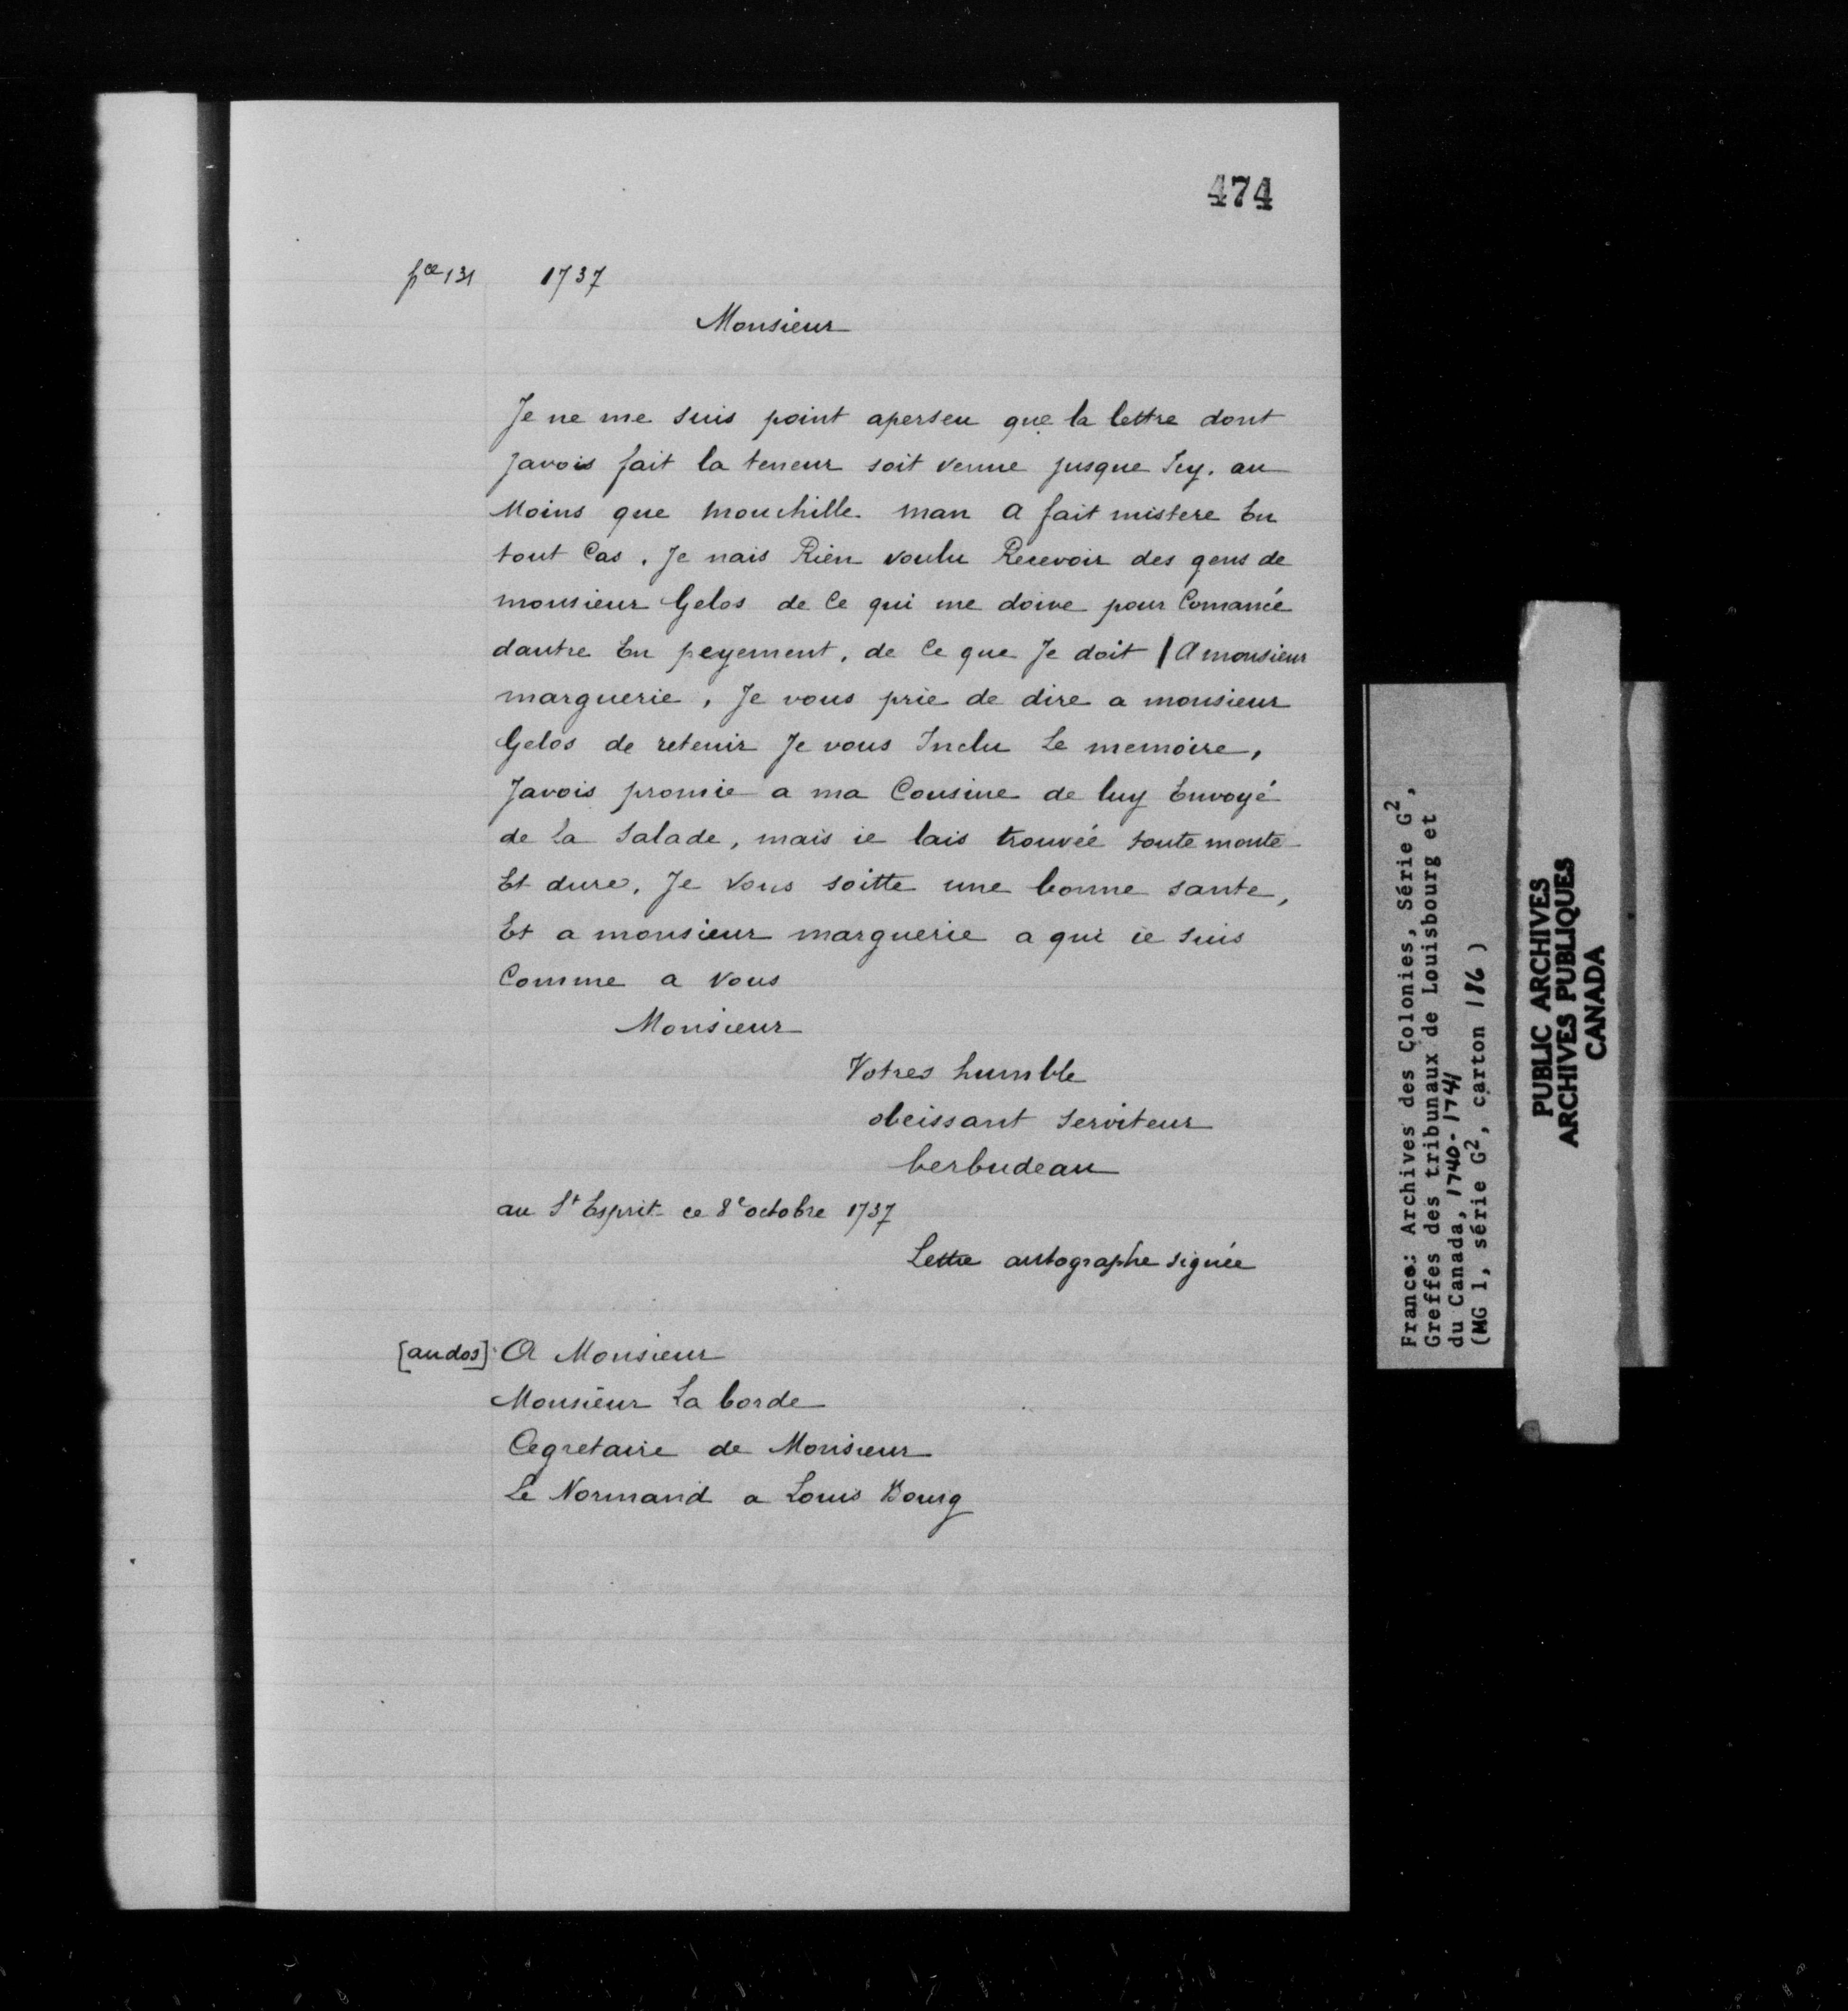 474
pce 131 1737
Monsieur
Je ne me suis point aperseu que la lettre dont
Javois fait la teneur soit venue jusque Icy. au
Moins que mouchille man a fait mistere En
tout Cas, Je nais Rien voulu Recevoir des gens de
monsieur Gelos de Ce qui me doive pour Comancé
dautre En peyement, de Ce que Je doit / A monsieur
marguerie, Je vous prie de dire a monsieur
Gelos de retenir Je vous Inclu Le memoire,
Javois promie a ma Cousine de luy Envoyé
de La Salade, mais ie lais trouvée toute monte
Et dure, Je Vous soitte une bonne sante,
Et a monsieur marguerie a qui ie suis
Comme a Vous
Monsieur
Votres humble
obeissant Serviteur
berbudeau
au St Esprit ce 8e octobre 1737
Lettre autographe signée
[au dos] A Monsieur
Monsieur La borde
Cegretaire de Monsieur
Le Normand a Louis Bourg
France: Archives des Colonies, Série G2,
Greffes des tribunaux de Louisbourg et
du Canada, 1740-1741
(MG 1, série G2, carton 186)
PUBLIC ARCHIVES
ARCHIVES PUBLIQUES
CANADA